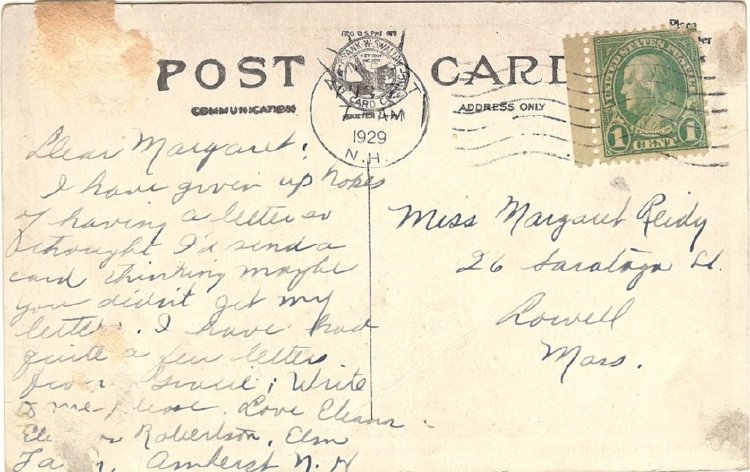 POST CARD
COMMUNICATION
ADDRESS ONLY
FRANK W. SWALLOW
CARD CO. INC.
AM
1929
N.H.
UNITED STATES POSTAGE
FRANKLIN
1 CENT 1
Dear Margaret;
I have given up hopes
of having a letter so
thought I'd send a
card thinking maybe
you didn't get my
letter. I have had
quite a few letters
from Write
to me please. Love
Robertson, Elm
Amherst N. H
Miss Margaret Reidy
26 Saratoga St.
Lowell
Mass.